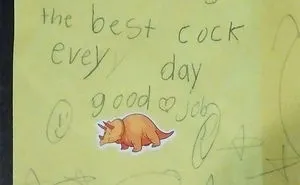 the best cock
evey day
good job